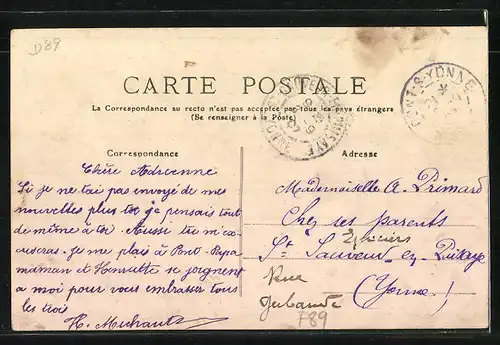 D89
CARTE POSTALE
La Correspondance au recto n'est pas acceptée par tous les pays étrangers
(Se renseigner à la Poste)
Correspondance
Adresse
Chère Adrienne
Si je ne t'ai pas envoyé de mes
nouvelles plus tôt je pensais tout
de même à toi Aussi tu m'ex
cuseras. Je me plais à Pont. Papa
maman et se joignent
a moi pour vous embrasser tous
les trois
Mademoiselle A. Primard
Chez ses parents
Epiciers
St Sauveur en Puisaye
Rue
(Yonne)
F89
PONT-S-YONNE